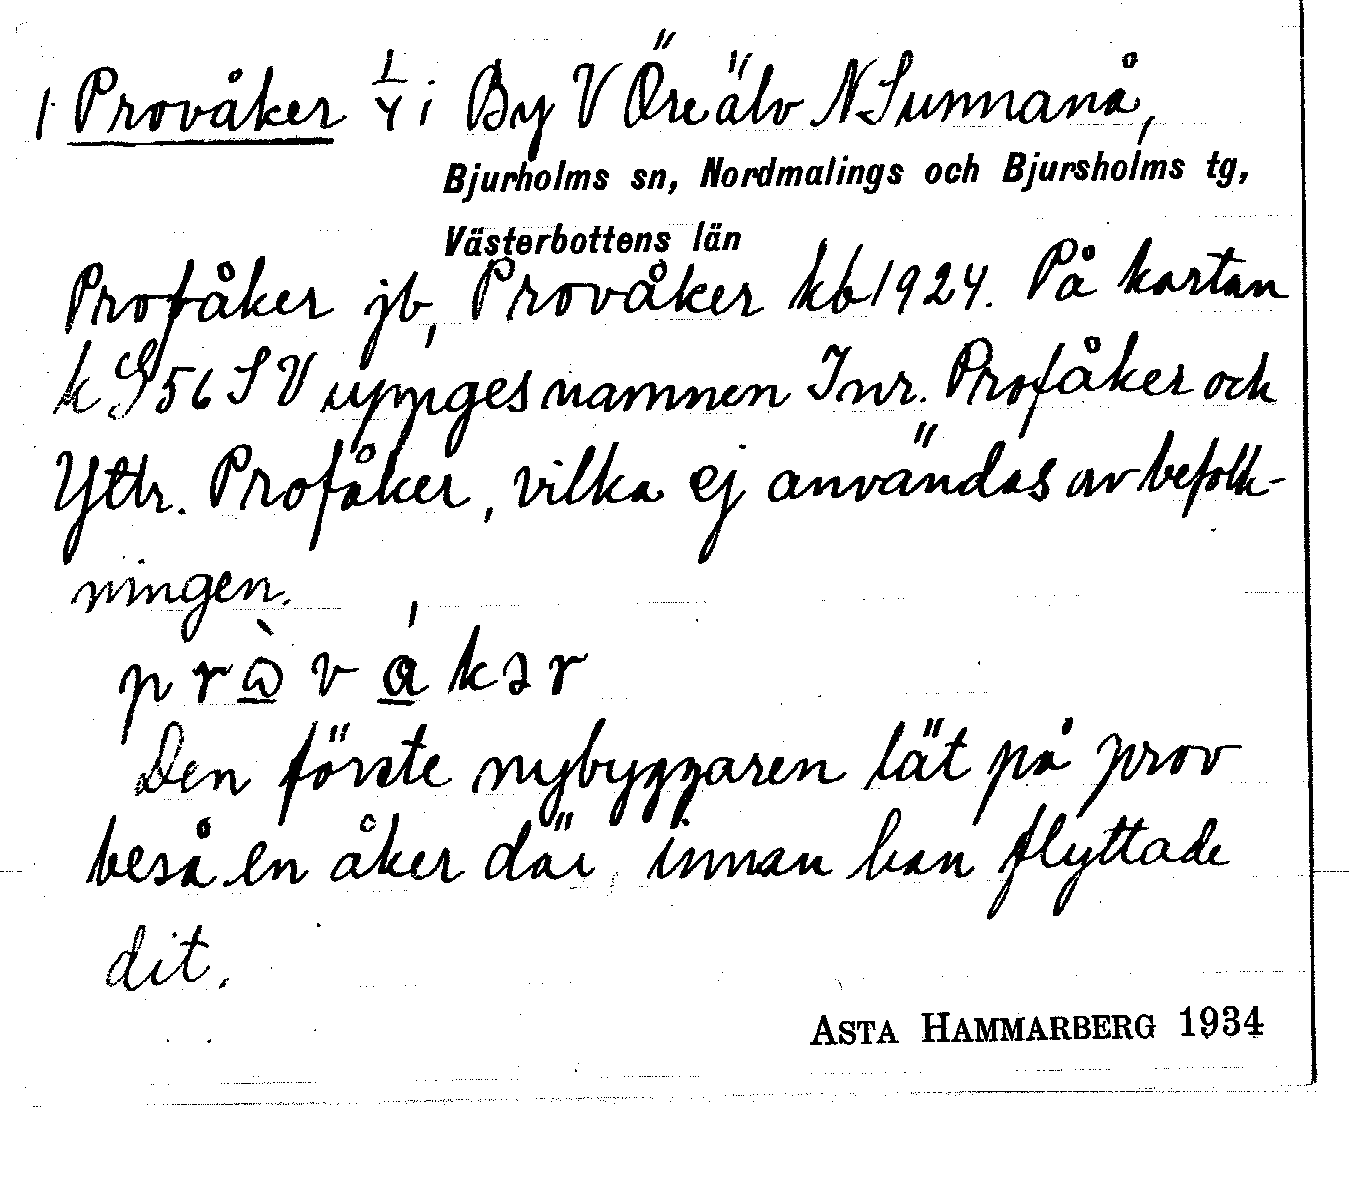 1 Provåker 1/4 i By V Öre älv N Sunnanå,
Bjurholms sn, Nordmalings och Bjursholms tg,
Västerbottens län
Profåker jb, Provåker kb 1924. På kartan
k G 56 S V uppges namnen Inr. Profåker och
Yttr. Profåker, vilka ej användas av befolk-
ningen.
Den förste nybyggaren lät på prov
beså en åker där innan han flyttade
dit.
ASTA HAMMARBERG 1934